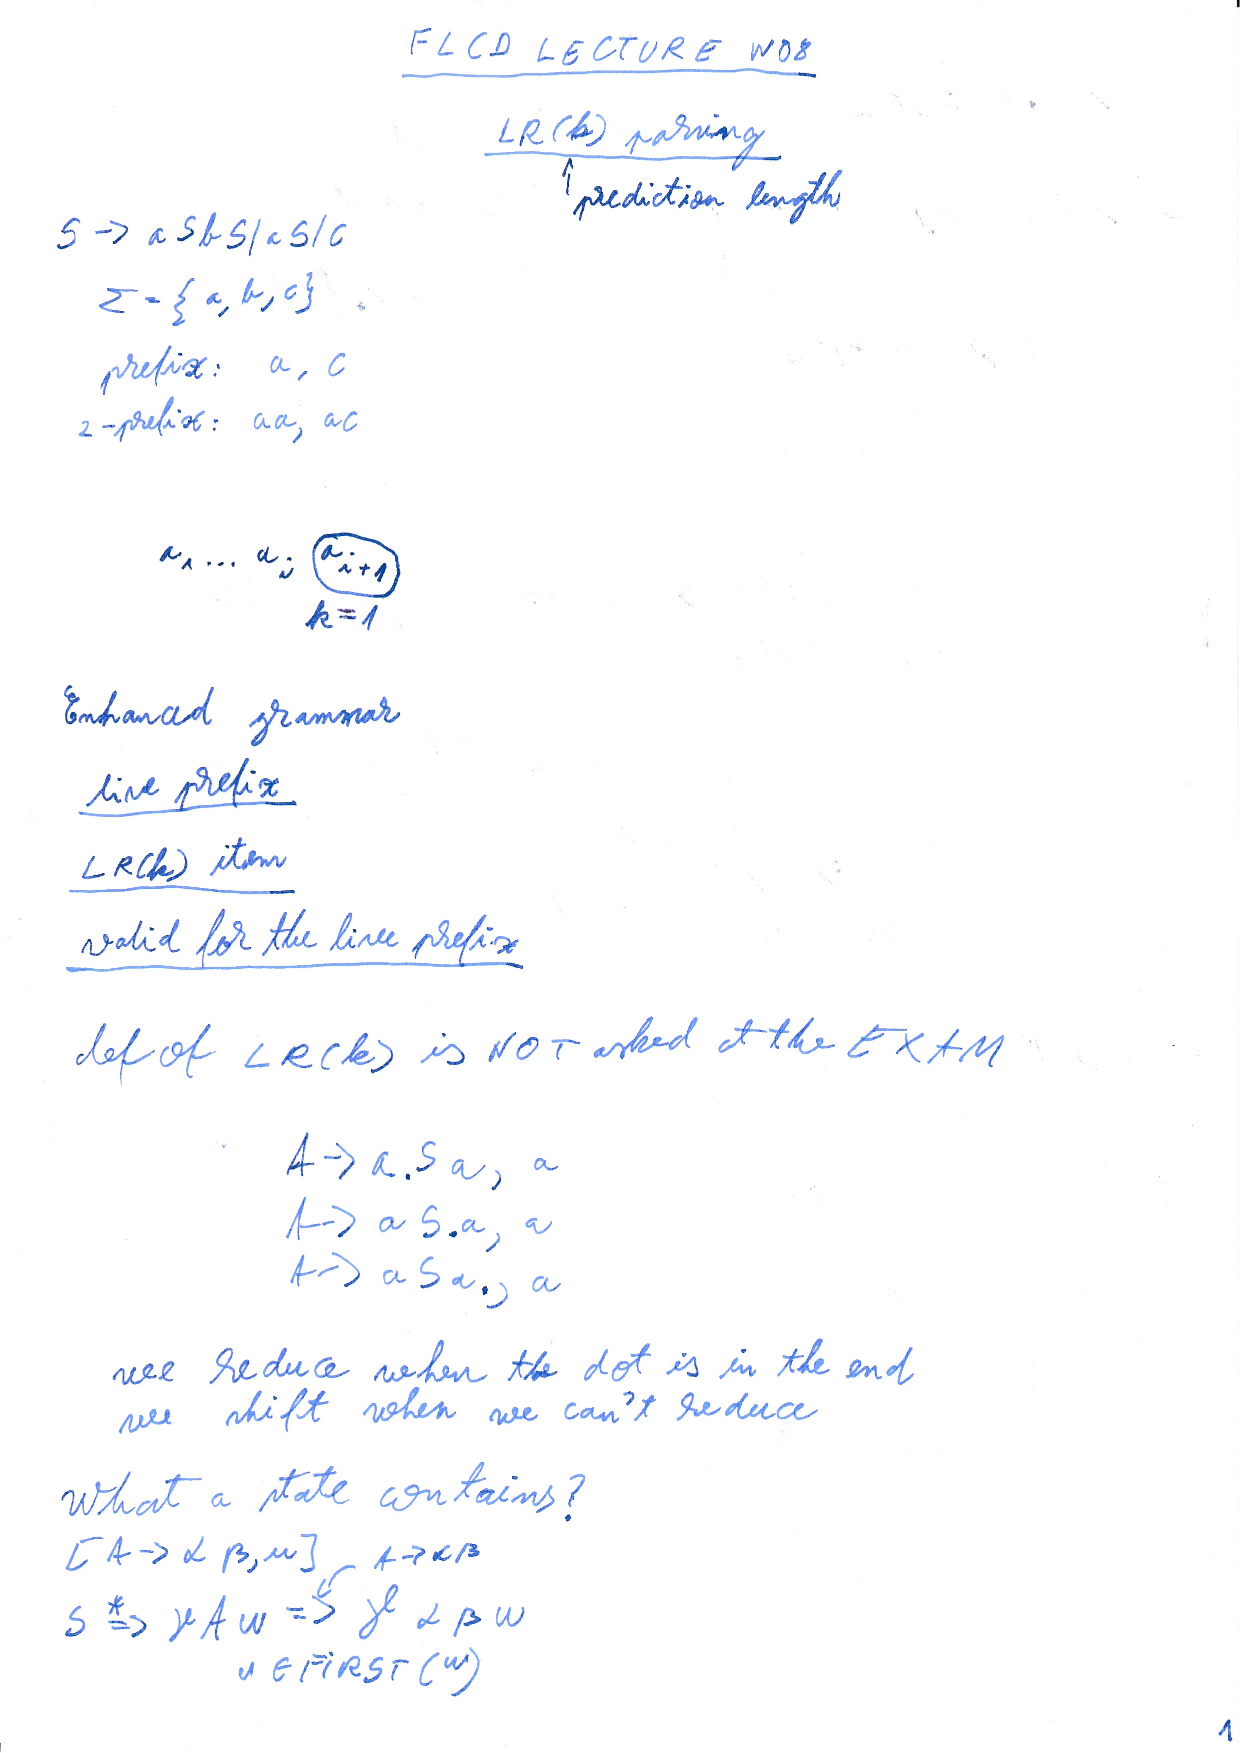 FLCD LECTURE W08
LR(k) parsing
↑ prediction length
S -> aSbS|aS|c
Σ = {a, b, c}
prefix: a, c
2-prefix: aa, ac
a₁ ... aᵢ aᵢ₊₁
k=1
Enhanced grammar
live prefix
LR(k) item
valid for the live prefix
def of LR(k) is NOT asked at the EXAM
A -> a.Sa, a
A -> aS.a, a
A -> aSa., a
we reduce when the dot is in the end
we shift when we can't reduce
What a state contains?
[A -> αβ, u] A -> αβ
S *=> γAw => γαβw
u ∈ FIRST(w)
1